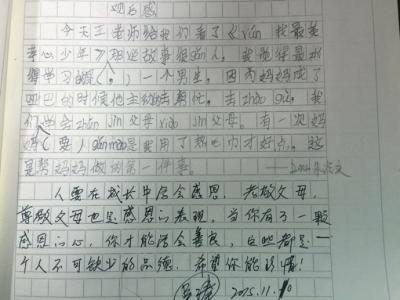 观后感
今天王老师给我们看了《xún 我最美
孝心少年》那些故事很gǎn人。我觉得最
得学习的是(:)一个男生,因为妈妈成了
的时候他主动去帮忙。去zhào gù。我
们学会zūn jìn父母xiào jìn父母。有一次妈
妈(要)gǎnmào是我用了热巾才好点。这
是帮妈妈做的第一件事。
人要在成长中学会感恩,孝敬父母,
尊敬父母也是感恩的表现,当你有了一颗
感恩的心,你才能学会善良,这些都是一
个人不可缺少的品德,希望你能珍惜!
2015.11.10